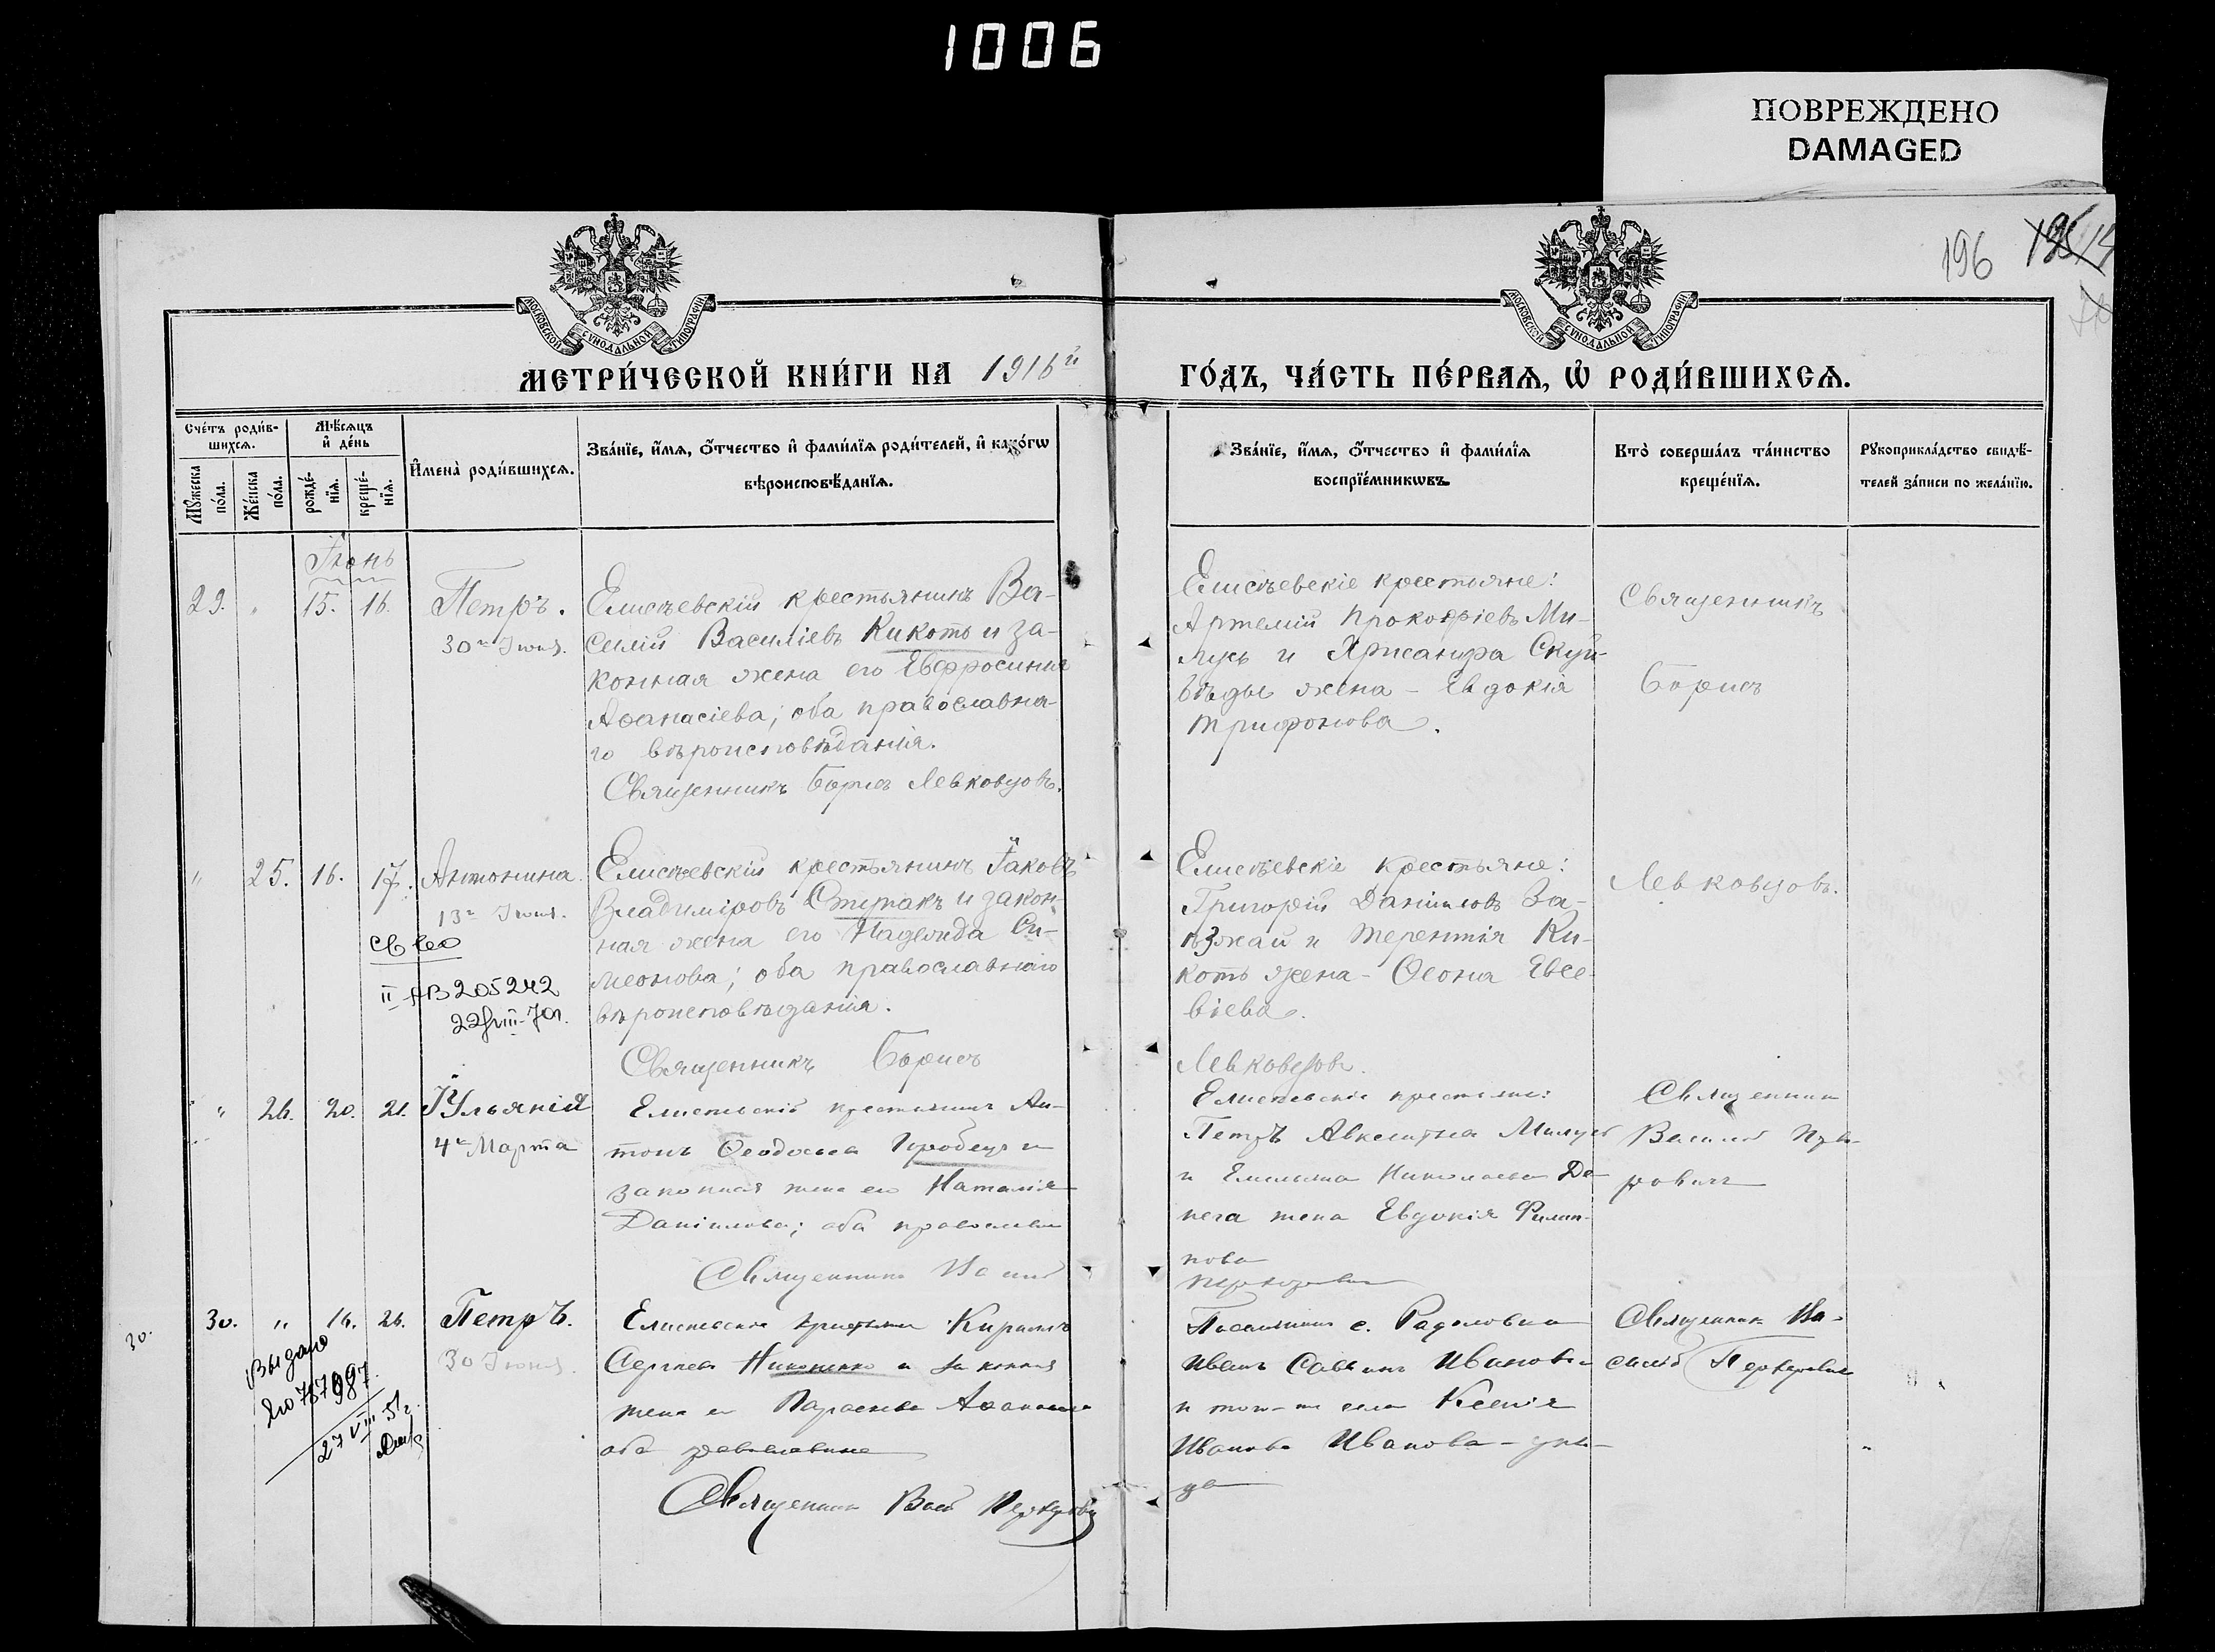 1006
ПОВРЕЖДЕНО
DAMAGED
196
МОСКОВСКОЙ СѴНОДАЛЬНОЙ ТИПОГРАФІИ
МОСКОВСКОЙ СѴНОДАЛЬНОЙ ТИПОГРАФІИ
МЕТРИ́ЧЕСКОЙ КНИ́ГИ НА 1916й
ГО́ДЪ, ЧА́СТЬ ПЕ́РВАѦ, Ѽ РОДИ́ВШИХСѦ.
Счётъ роди́в-
шихсѧ.
Мꙋ́жеска
по́ла.
Же́нска
по́ла.
Мѣ́сѧцъ
и҆ де́нь
рожде́-
нїѧ.
креще́-
нїѧ.
И҆мена̀ роди́вшихсѧ.
Зва́нїе, и҆́мѧ, ѻ҆́тчество и҆ фами́лїѧ роди́телей, и҆ како́гѡ
вѣроисповѣ́данїѧ.
Зва́нїе, и҆́мѧ, ѻ҆́тчество и҆ фами́лїѧ
воспрїе́мникѡвъ.
Кто̀ соверша́лъ та́инство
креще́нїѧ.
Рꙋкоприкла́дство свидѣ́-
телей за́писи по жела́нїю.
Іюнь
29. " 15. 16. Петръ.
30го Іюня.
Елисѣевскій крестьянинъ Ва-
силій Васильевъ Кикоть и за-
конная жена его Евфросинія
Аѳанасіева; оба православна-
го вѣроисповѣданія.
Священникъ Борисъ Левковцовъ.
Елисѣевскіе крестьяне:
Артемій Прокофіевъ Ми-
лусь и Хрисанфа Скуй-
бѣды жена - Евдокія
Трифонова.
Священникъ
Борисъ
" 25. 16. 17. Антонина.
13го Іюня.
II АВ 205242
22/VIII-70г.
Елисѣевскій крестьянинъ Іаковъ
Владиміровъ Ступакъ и закон-
ная жена его Надежда Си-
меонова; оба православнаго
вѣроисповѣданія.
Священникъ Борисъ
Елисѣевскіе крестьяне:
Григорій Даніиловъ За-
ѣзжай и Терентія Ки-
коть жена - Ѳеона Евсе-
віева.
Левковцовъ.
Левковцовъ.
" 26. 20. 21. Іульянія
4го Марта
Елисѣевскій крестьянинъ Ан-
тонъ Ѳеодосьевъ Горобецъ и
законная жена его Наталія
Даніилова; оба православн
Священникъ
Елисѣевскіе крестьяне:
Петръ Милусь
и Емельяна Николаева Де-
нега жена Евдокія Филип-
пова
Священникъ
Василій
30.
30. " 16. 26. Петръ.
30 Іюня.
Выдано
787987
27 VIII 51г.
Елисѣевскій крестьянинъ Кириллъ
Сергѣевъ Никоненко и законная
жена его Параскева Аѳанасіева
оба православные
Священникъ
с. Радоловка
Иванъ Саввинъ Ивановъ
и того-же села Ксенія
Иванова Иванова - дѣви-
ца
Священникъ Ва-
силій